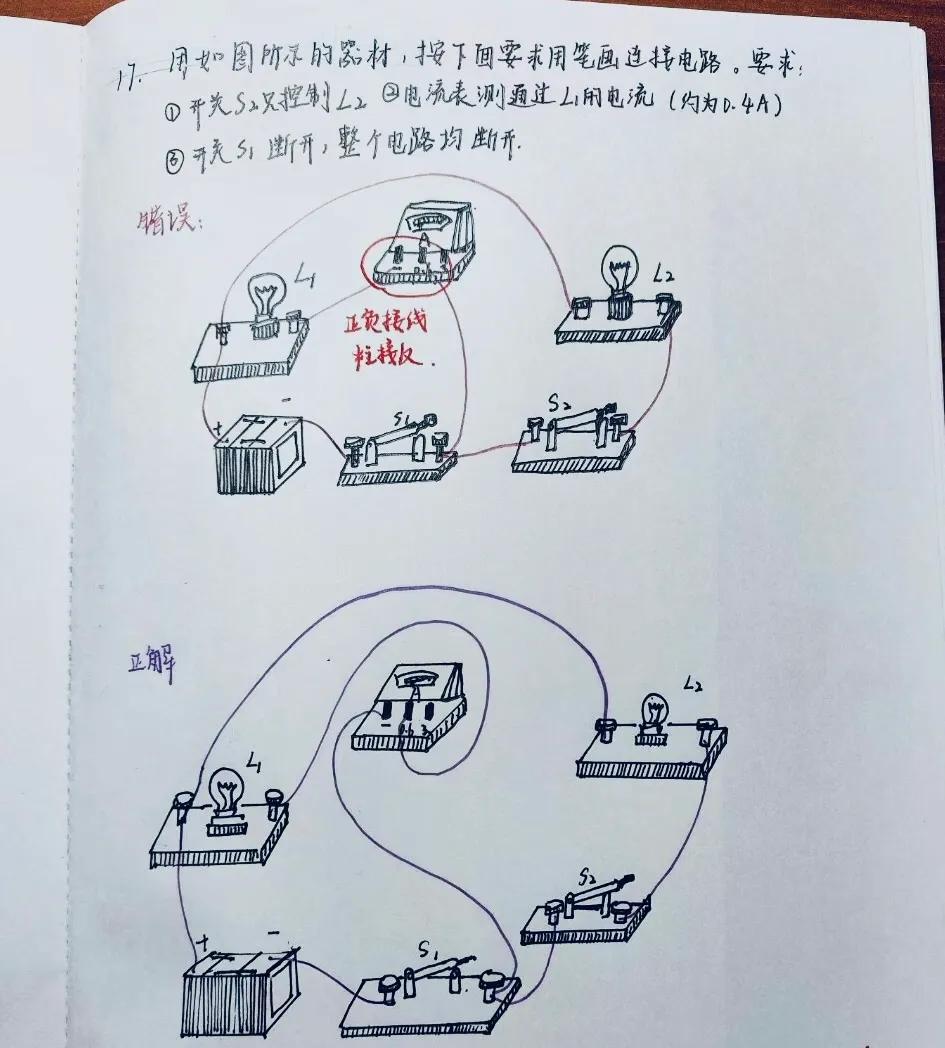 17. 用如图所示的器材，按下面要求用笔画连接电路。要求：
① 开关S₂只控制L₂ ②电流表测通过L₁的电流（约为0.4A）
③ 开关S₁断开，整个电路均断开.
错误：
L₁
L₂
正负接线
柱接反.
-
+
S₁
S₂
正解
L₂
-
L₁
S₂
+
-
S₁